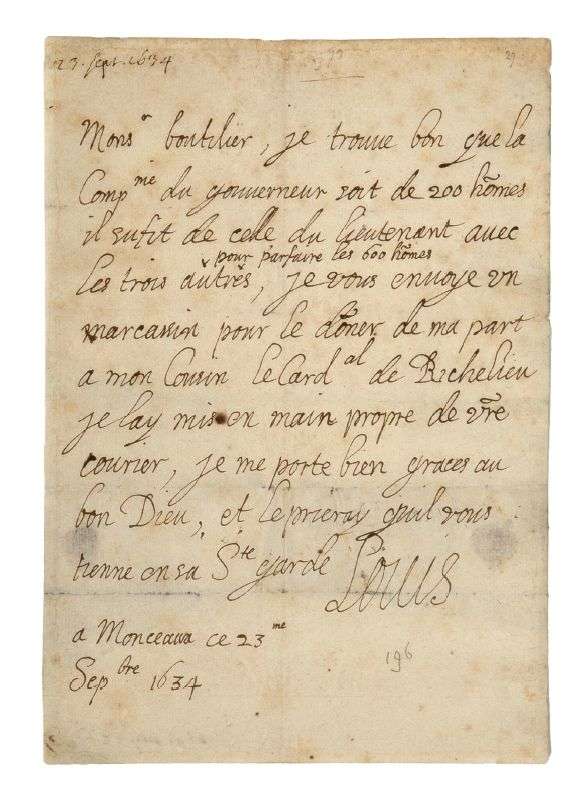 23. sept. 1634
29
Mons^r boutilier, je trouve bon que la
Comp^nie du gouverneur soit de 200 hōmes
il sufit de celle du lieutenant avec
pour parfaire les 600 hōmes
les trois autres, je vous envoye un
marcassin pour le dōner de ma part
a mon Cousin le Card^al de Richelieu
je lay mis en main propre de vr̃e
courier, je me porte bien graces au
bon Dieu, et le prieray quil vous
tienne en sa S^te garde Louis
a Monceaux ce 23^me
Sep^bre 1634
196